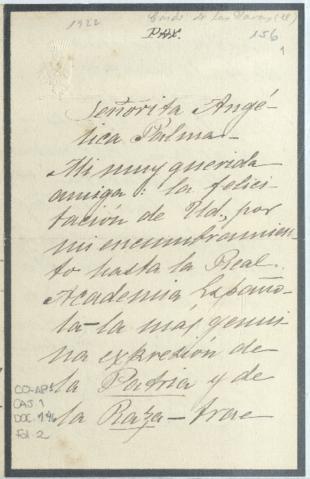 1922
Conde de las Navas (el)
156
1
Señorita Angé-
lica Palma-
Mi muy querida
amiga: la felici-
tación de Ud., por
mi encumbramien-
to hasta la Real
Academia Españo-
la - la más genui-
na expresión de
la Patria y de
la Raza - trae
CO-AP1
CAJ. 1
DOC.
Fol. 2